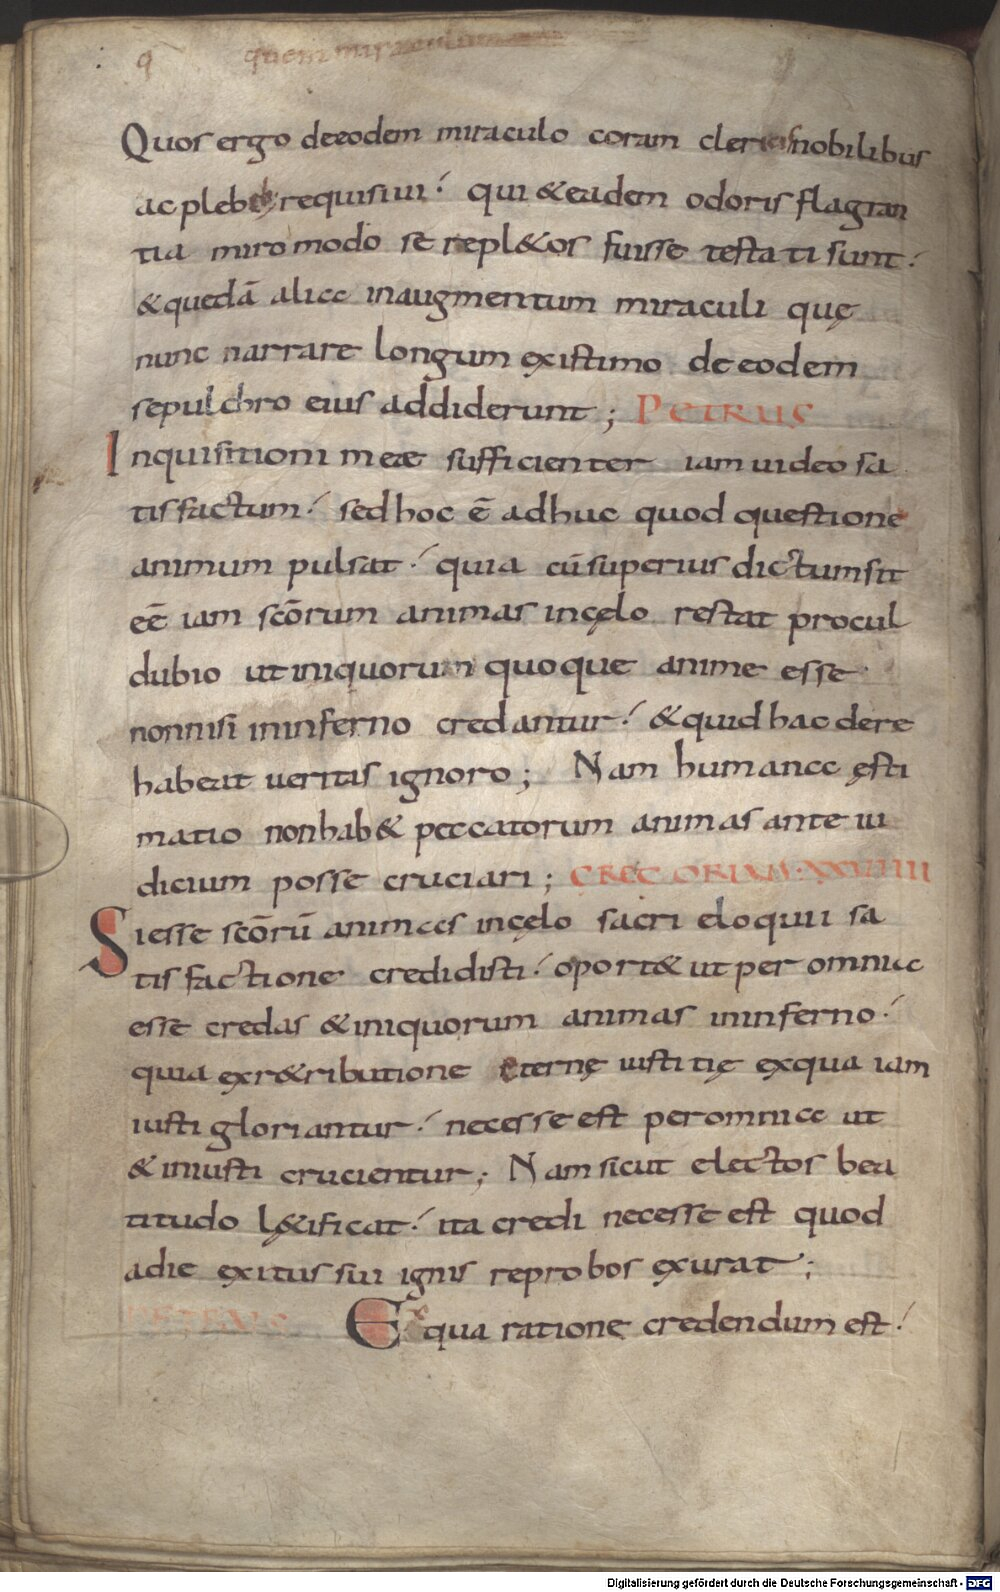 quem miraculum
Quos ergo deeodem miraculo coram clericis nobilibus
ac plebe requisiui qui & eadem odoris flagran
tia miro modo se repl&os fuisse testati sunt
& quedā alia inaugmentum miraculi quę
nunc narrare longum existimo de eodem
sepulchro eius addiderunt ; PETRUS
Inquisitioni meae sufficienter iam uideo sa
tisfactum sed hoc ē adhuc quod questione
animum pulsat quia cū superius dictum sit
eē iam scōrum animas incęlo restat procul
dubio ut iniquorum quoque anime esse
nonnisi ininferno credantur & quid hac dere
habeat ueritas ignoro ; Nam humana ęsti
matio non hab& peccatorum animas ante iu
dicium posse cruciari ; GREGORIUS XXVIIII
Si esse scōrū animas incęlo sacri eloquii sa
tisfactione credidisti oport& ut per omnia
esse credas & iniquorum animas ininferno
quia exr&ributione eternę iustitię exqua iam
iusti gloriantur necesse est peromnia ut
& iniusti crucientur ; Nam sicut electos bea
titudo l&ificat ita credi necesse est quod
adie exitus sui ignis reprobos exurat ;
PETRUS Ex qua ratione credendum est
Digitalisierung gefördert durch die Deutsche Forschungsgemeinschaft - DFG